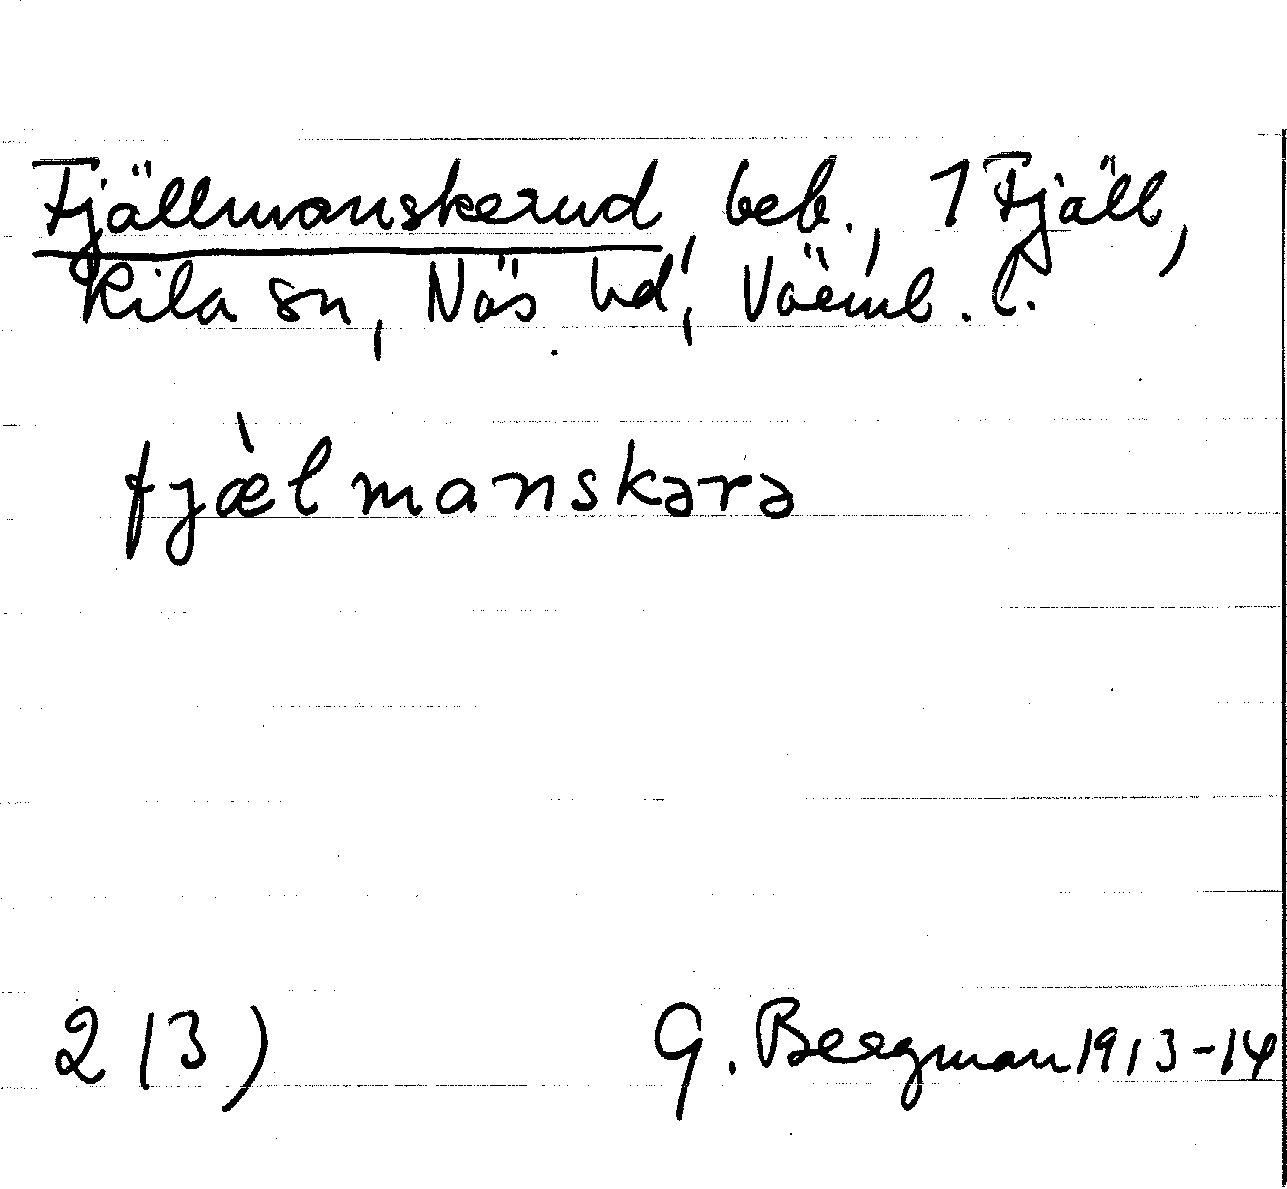 Fjällmanskerud, beb., 1 Fjäll,
Kila sn, Näs hd, Värml. l.
fjæ̀lmanskərə
2 (3)
G. Bergman 1913-14